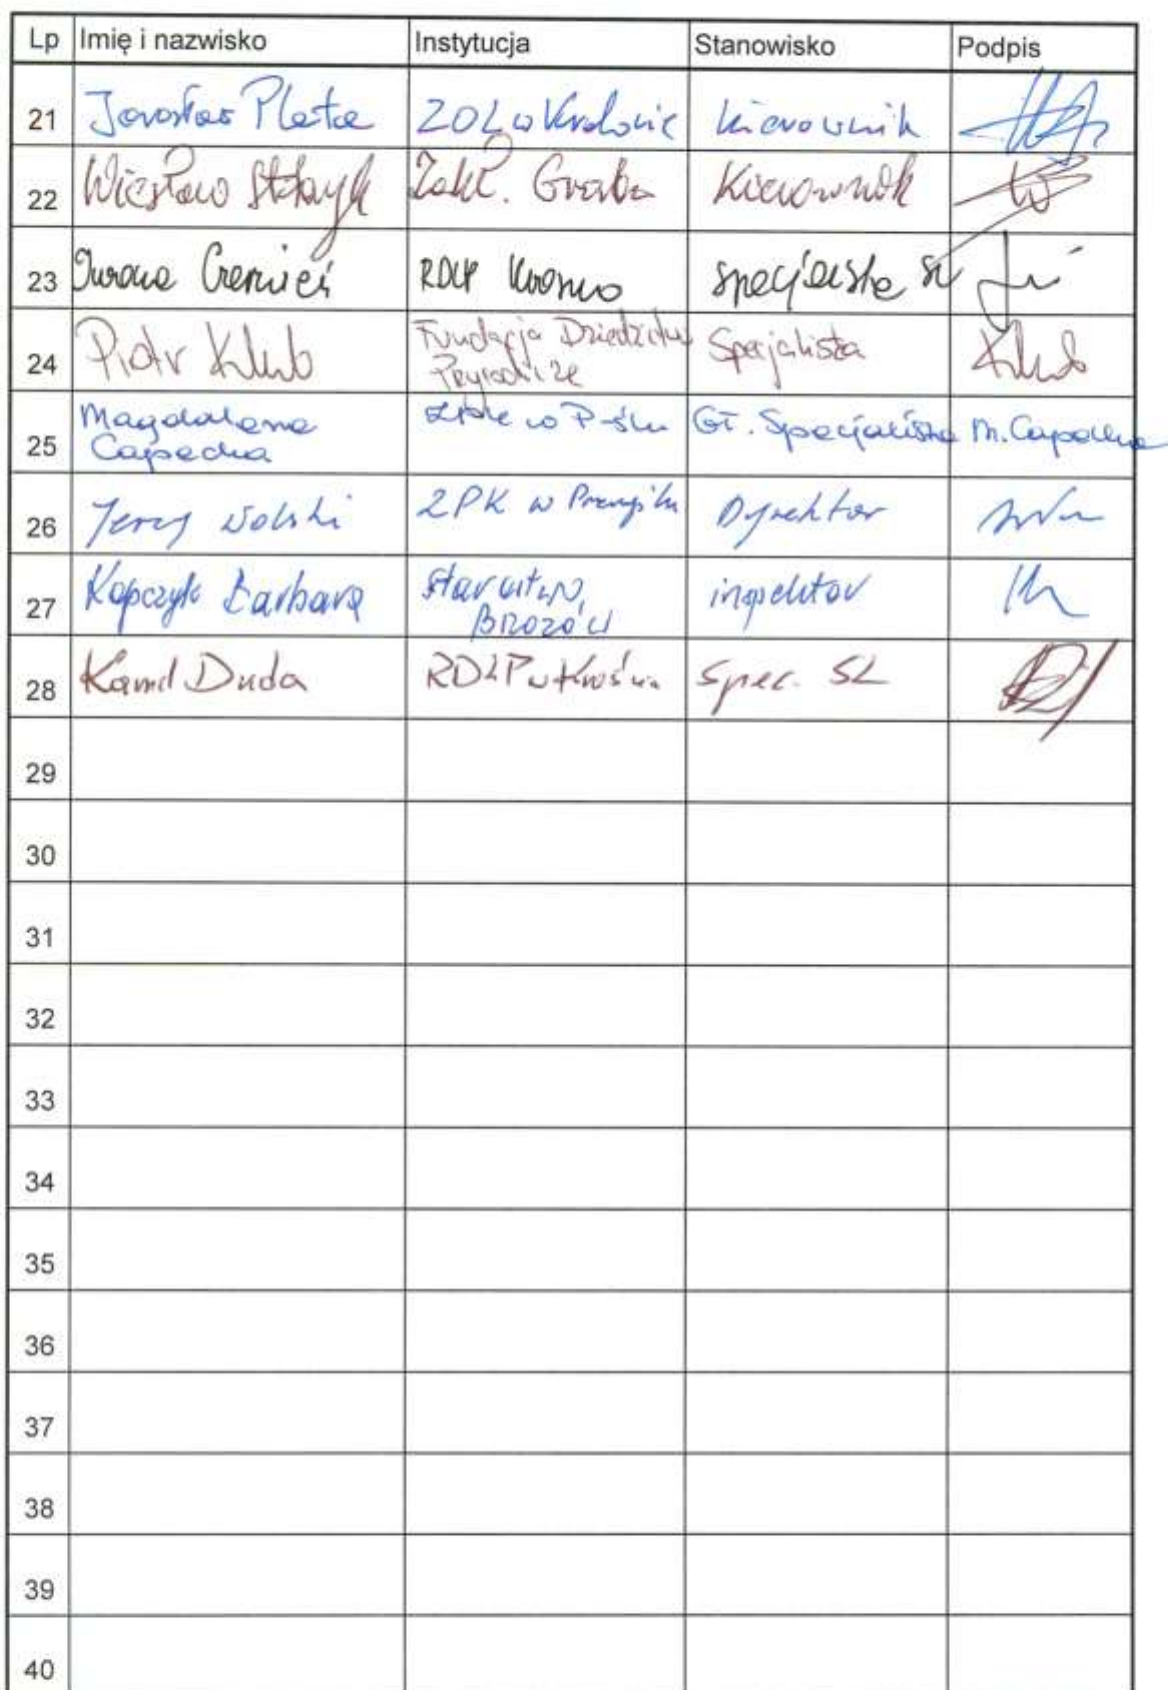 Lp Imię i nazwisko Instytucja Stanowisko Podpis
21 Jarosław Plata ZOL w Krakowie kierownik
22 Wiesław Zakł. Kierownik
23 Iwona RDLP Krosno specjalista SL
24 Piotr Klub Fundacja Dziedzictwo Specjalista Klub
Przyrodnicze
25 Magdalena w P-ślu Gł. Specjalista M.
26 Jerzy Wolski ZPK w Przemyślu Dyrektor
27 Kopczyk Barbara Starostwo inspektor
Brzozów
28 Kamil Duda RDLP w Krośnie Spec. SL
29
30
31
32
33
34
35
36
37
38
39
40